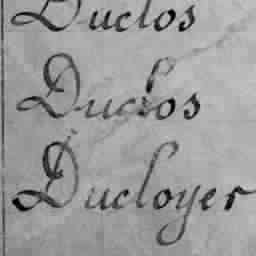 Duclos
Duclos
Ducloyer